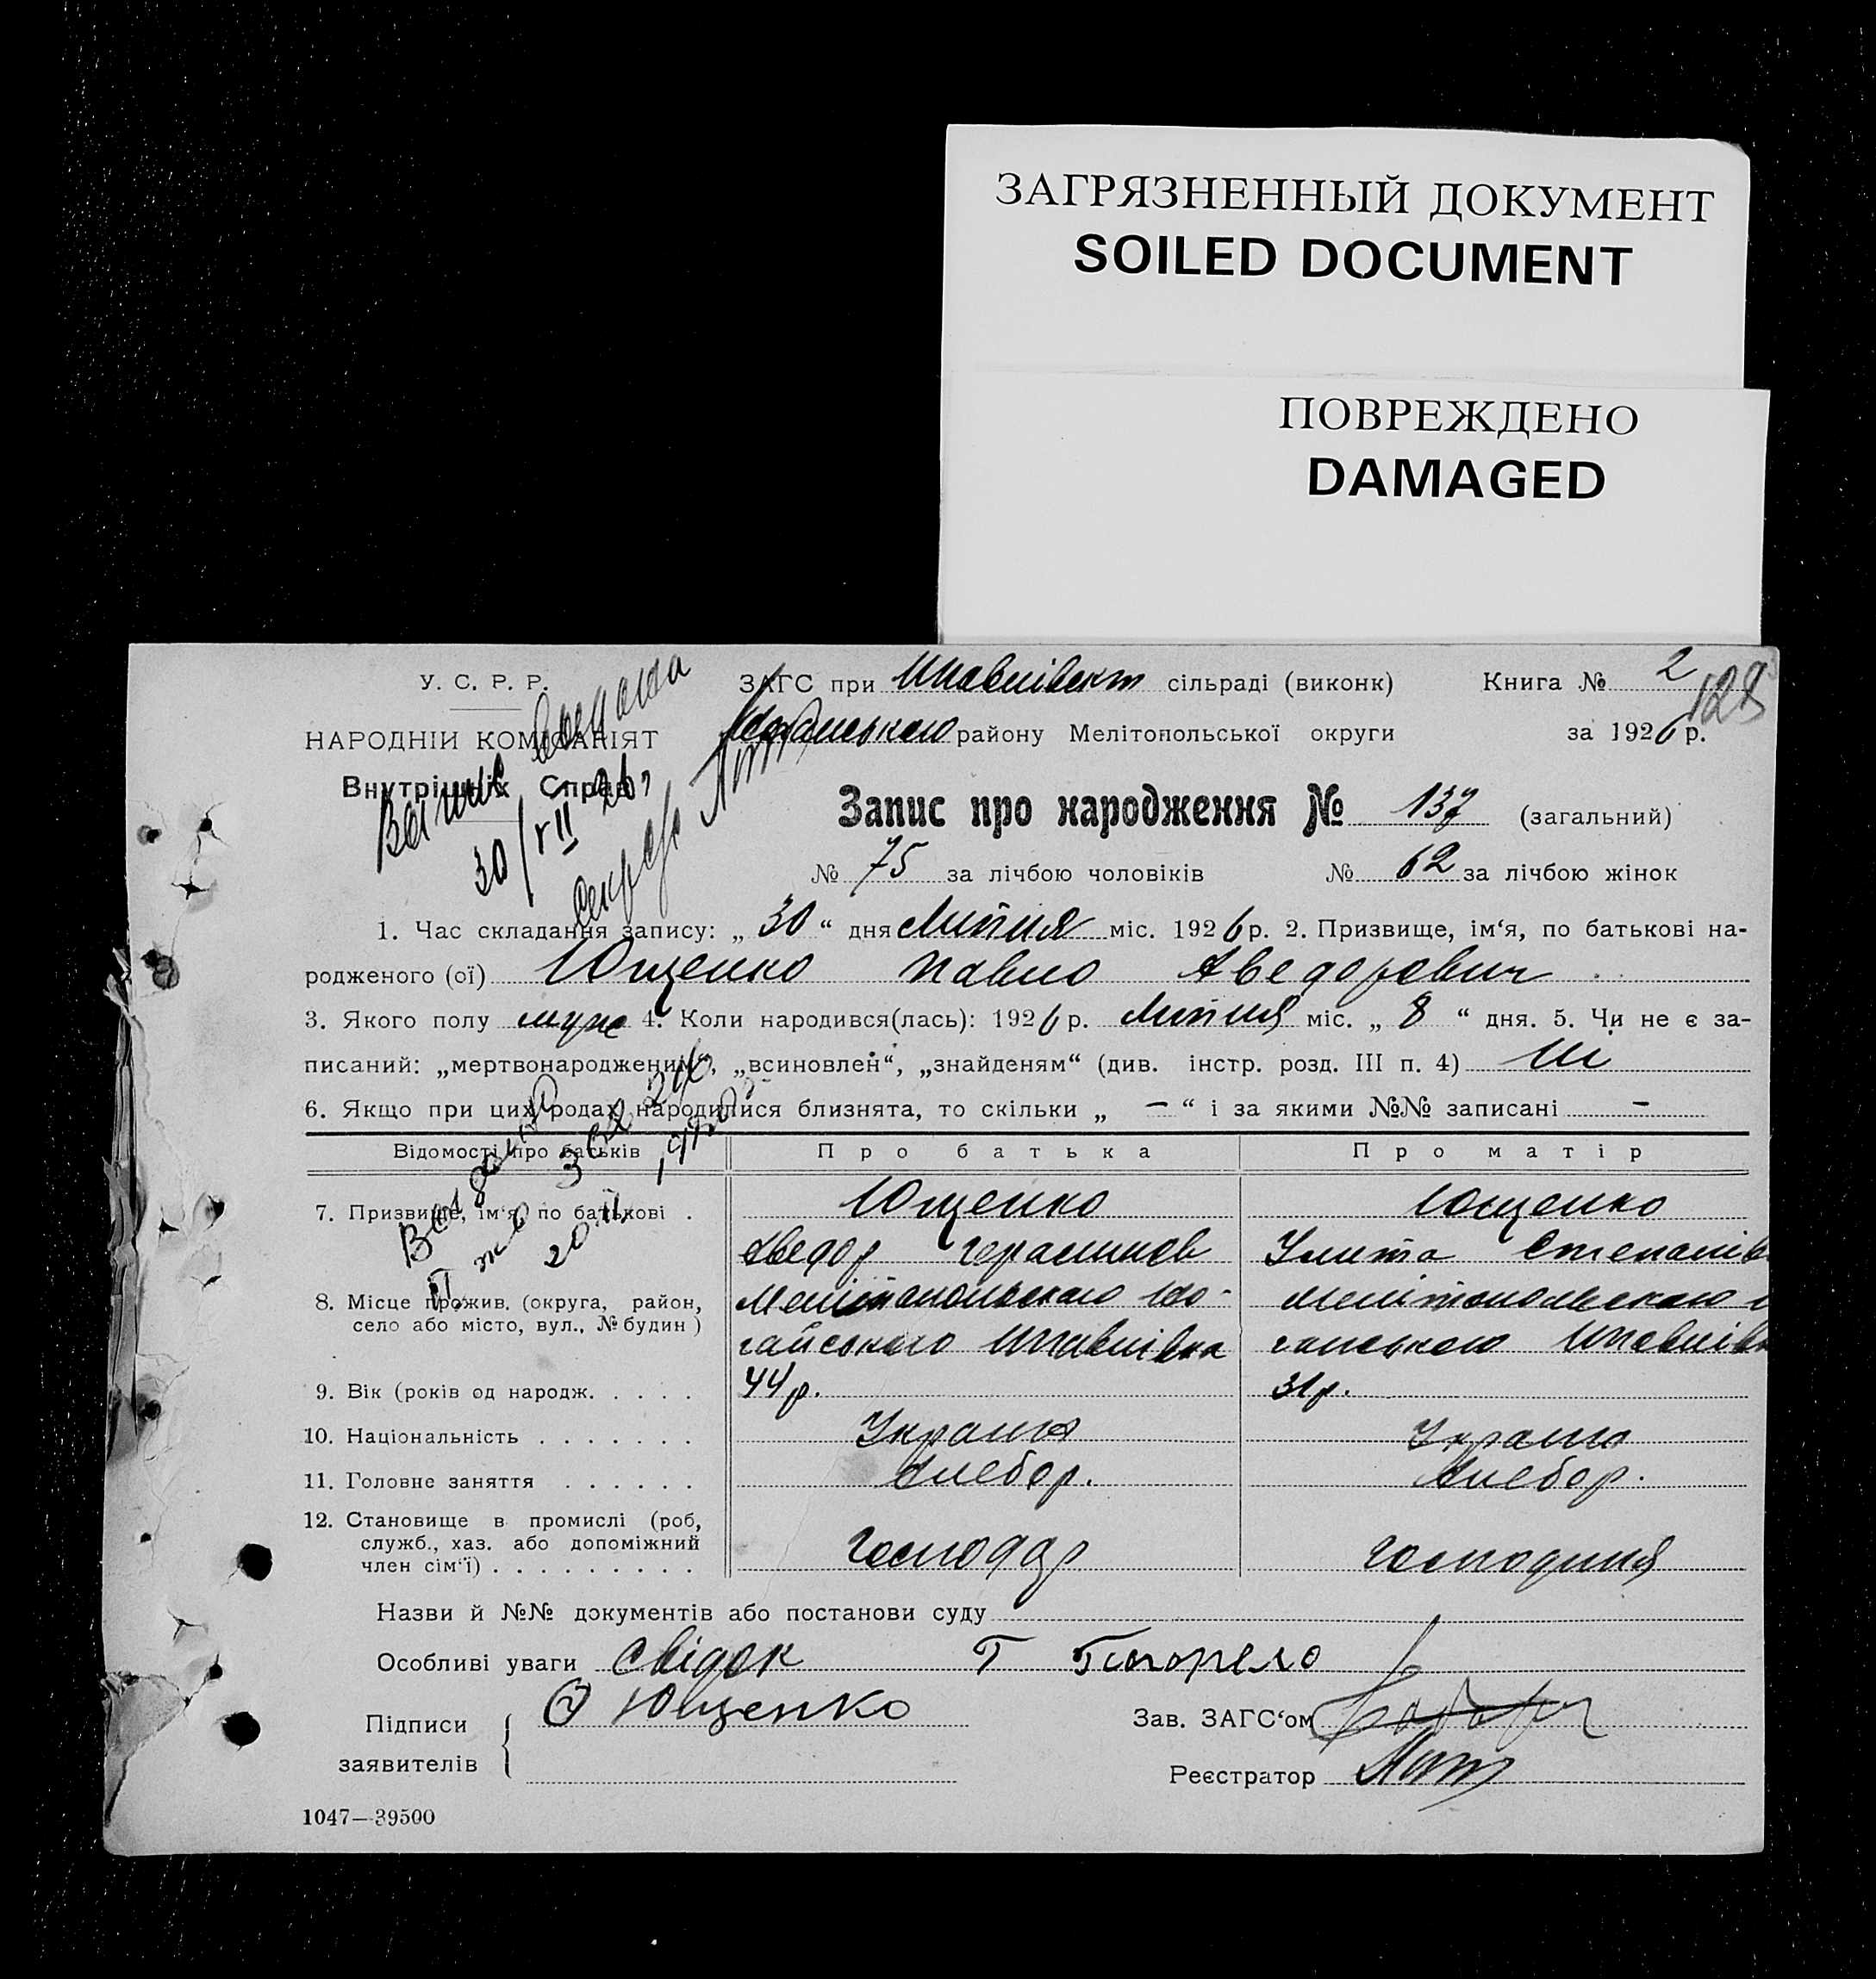 ЗАГРЯЗНЕННЫЙ ДОКУМЕНТ
SOILED DOCUMENT
ПОВРЕЖДЕНО
DAMAGED
У. С. Р. Р.
НАРОДНІЙ КОМІСАРІЯТ
Внутрішніх Справ
30/VII 26
ЗАГС при сільраді (виконк)
Книга № 2
128
району Мелітопольської округи
за 1926 р.
Запис про народження № 137 (загальний)
№ 75 за лічбою чоловіків № 62 за лічбою жінок
1. Час складання запису: „ 30 “ дня Липня міс. 1926 р. 2. Призвище, ім‘я, по батькові на-
родженого (ої) Ющенко Павло Аведорович
3. Якого полу муж 4. Коли народився(лась): 1926 р. Липня міс. „ 8 “ дня. 5. Чи не є за-
писаний: „мертвонародженим“, „всиновлен“, „знайденям“ (див. інстр. розд. III п. 4) Ні
6. Якщо при цих родах народилися близнята, то скільки „ — “ і за якими №№ записані —
Відомості про батьків Про батька Про матір
7. Призвище, ім‘я, по батькові . Ющенко Ющенко
Аведор Герасимов Улита Степанів
8. Місце прожив. (округа, район,
село або місто, вул., № будин )
9. Вік (років од народж. . . . . 44 р. 31 р.
10. Національність . . . . . . . Україн Україн
11. Головне заняття . . . . . . Хлебор. Хлебор.
12. Становище в промислі (роб,
служб., хаз. або допоміжний
член сім‘ї) . . . . . . . . . Господар Господиня
Назви й №№ документів або постанови суду
Особливі уваги Свідок Г Погорело
Підписи
заявителів
Ющенко
Зав. ЗАГС‘ом
Реєстратор
1047—39500